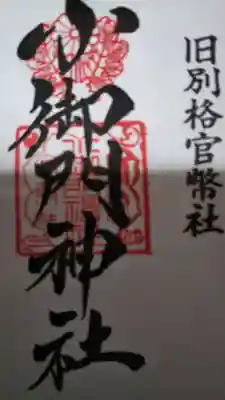 旧別格官幣社
小御門神社